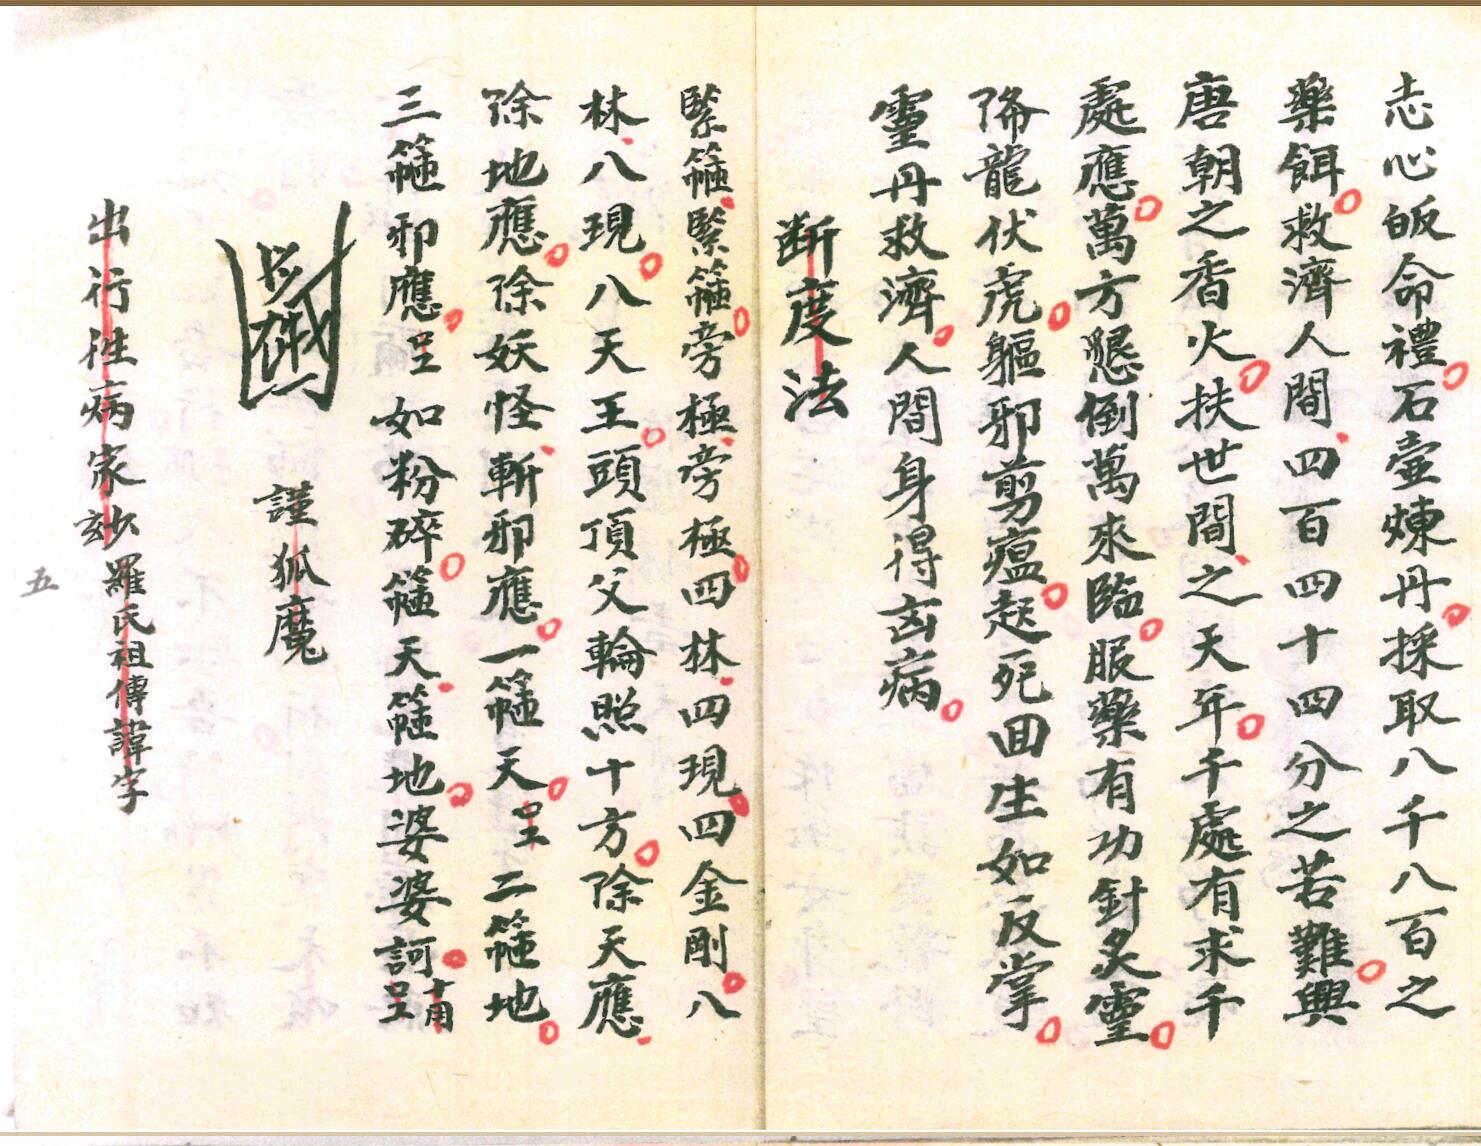 志心皈命禮石壺煉丹採取八千八百之
藥餌救濟人間四百四十四分之苦難興
唐朝之香火扶世間之天年千處有求千
處應萬方懇倒萬來臨服藥有功針炙靈
降龍伏虎軀邪剪瘟起死回生如反掌
靈丹救濟人間身得玄病
断度法
緊箍緊箍旁極旁極四林四現四金剛八
林八現八天王頭頂父輪照十方除天應
除地應除妖怪斬邪應一箍天二箍地
三箍邪應如粉碎箍天箍地婆婆訶
十用
謹狐魔
出行性病家妙羅氏祖傳諱字
五